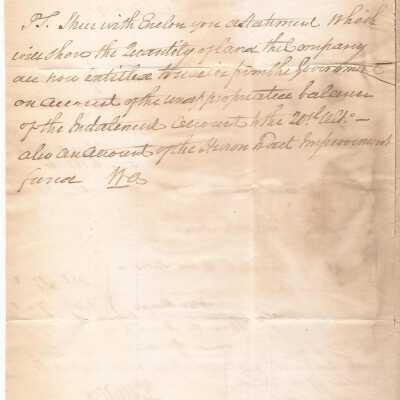 P.S. I herewith Enclose you a Statement Which
will show the Quantity of Land the Company
are now entitled to receive from the Government
on account of the unappropriated balance
of the Instalment account to the 20th Ulto —
also an account of the Huron Tract Improvement
fund